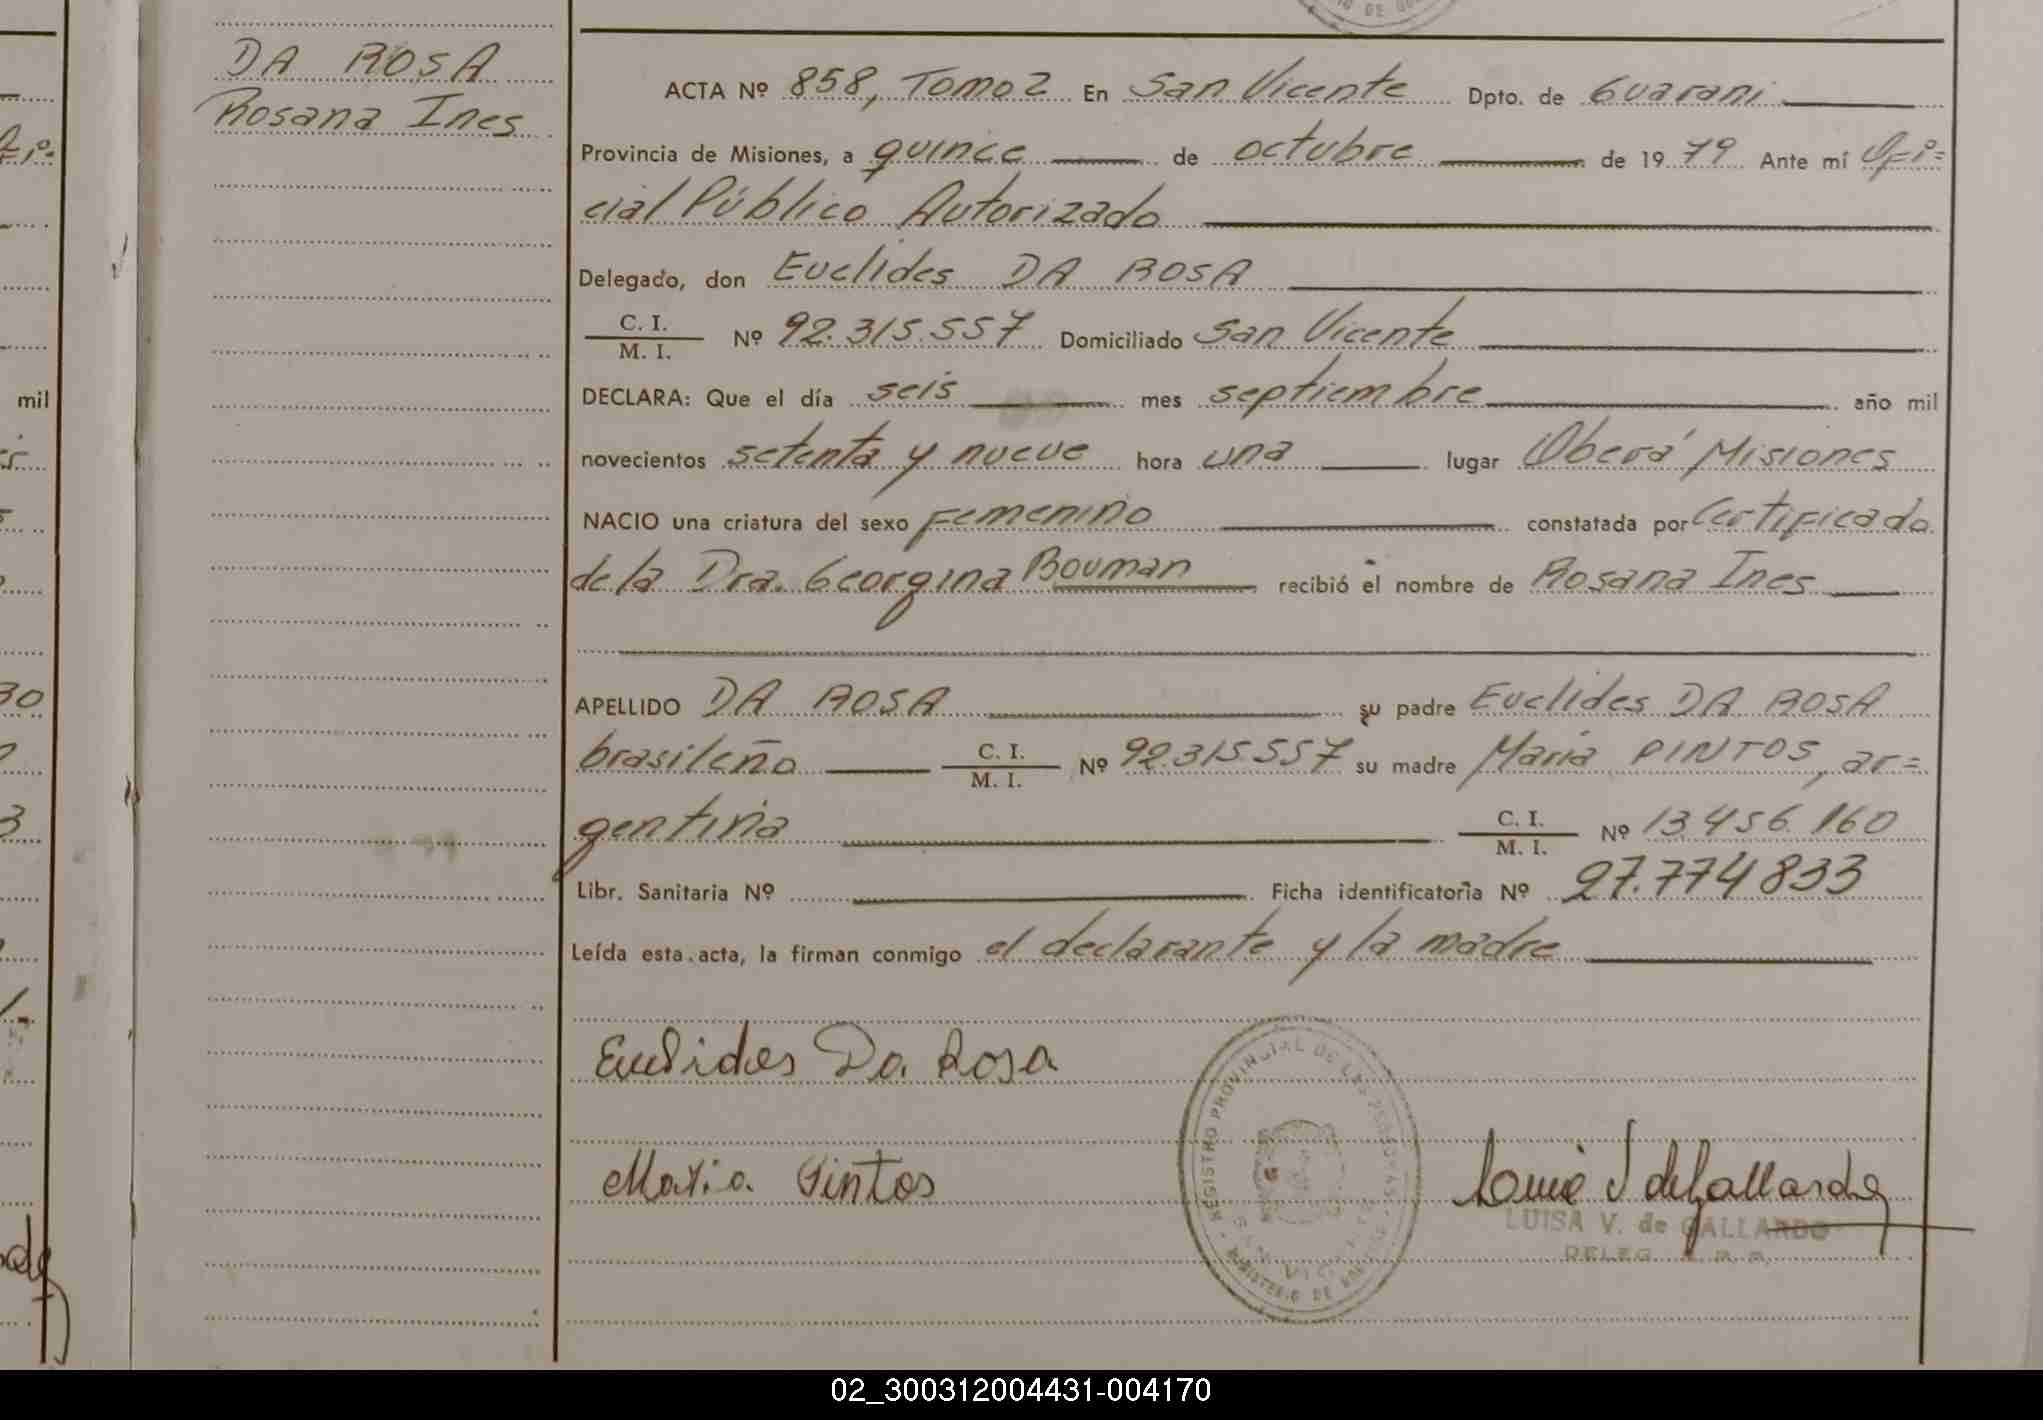 DA ROSA
Rosana Ines
ACTA Nº 858, Tomo 2 En San Vicente Dpto. de Guarani
Provincia de Misiones, a quince de octubre de 1979 Ante mí Ofi=
cial Público Autorizado
Delegado, don Euclides DA ROSA
C. I.
M. I. Nº 92.315.557 Domiciliado San Vicente
DECLARA: Que el día seis mes septiembre año mil
novecientos setenta y nueve hora una lugar Oberá Misiones
NACIO una criatura del sexo femenino constatada por Certificado
de la Dra. Georgina Bouman recibió el nombre de Rosana Ines
APELLIDO DA ROSA su padre Euclides DA ROSA
brasileño C. I.
M. I. Nº 92.315.557 su madre María PINTOS, ar=
gentina C. I.
M. I. Nº 13.456.160
Libr. Sanitaria Nº Ficha identificatoria Nº 27.774833
Leída esta acta, la firman conmigo el declarante y la madre
Euclides Da Rosa
Maria Pintos
REGISTRO PROVINCIAL DE LAS PERSONAS
MINISTERIO DE
LUISA V. de GALLARDO
DELEG.
mil
30
3
02_300312004431-004170